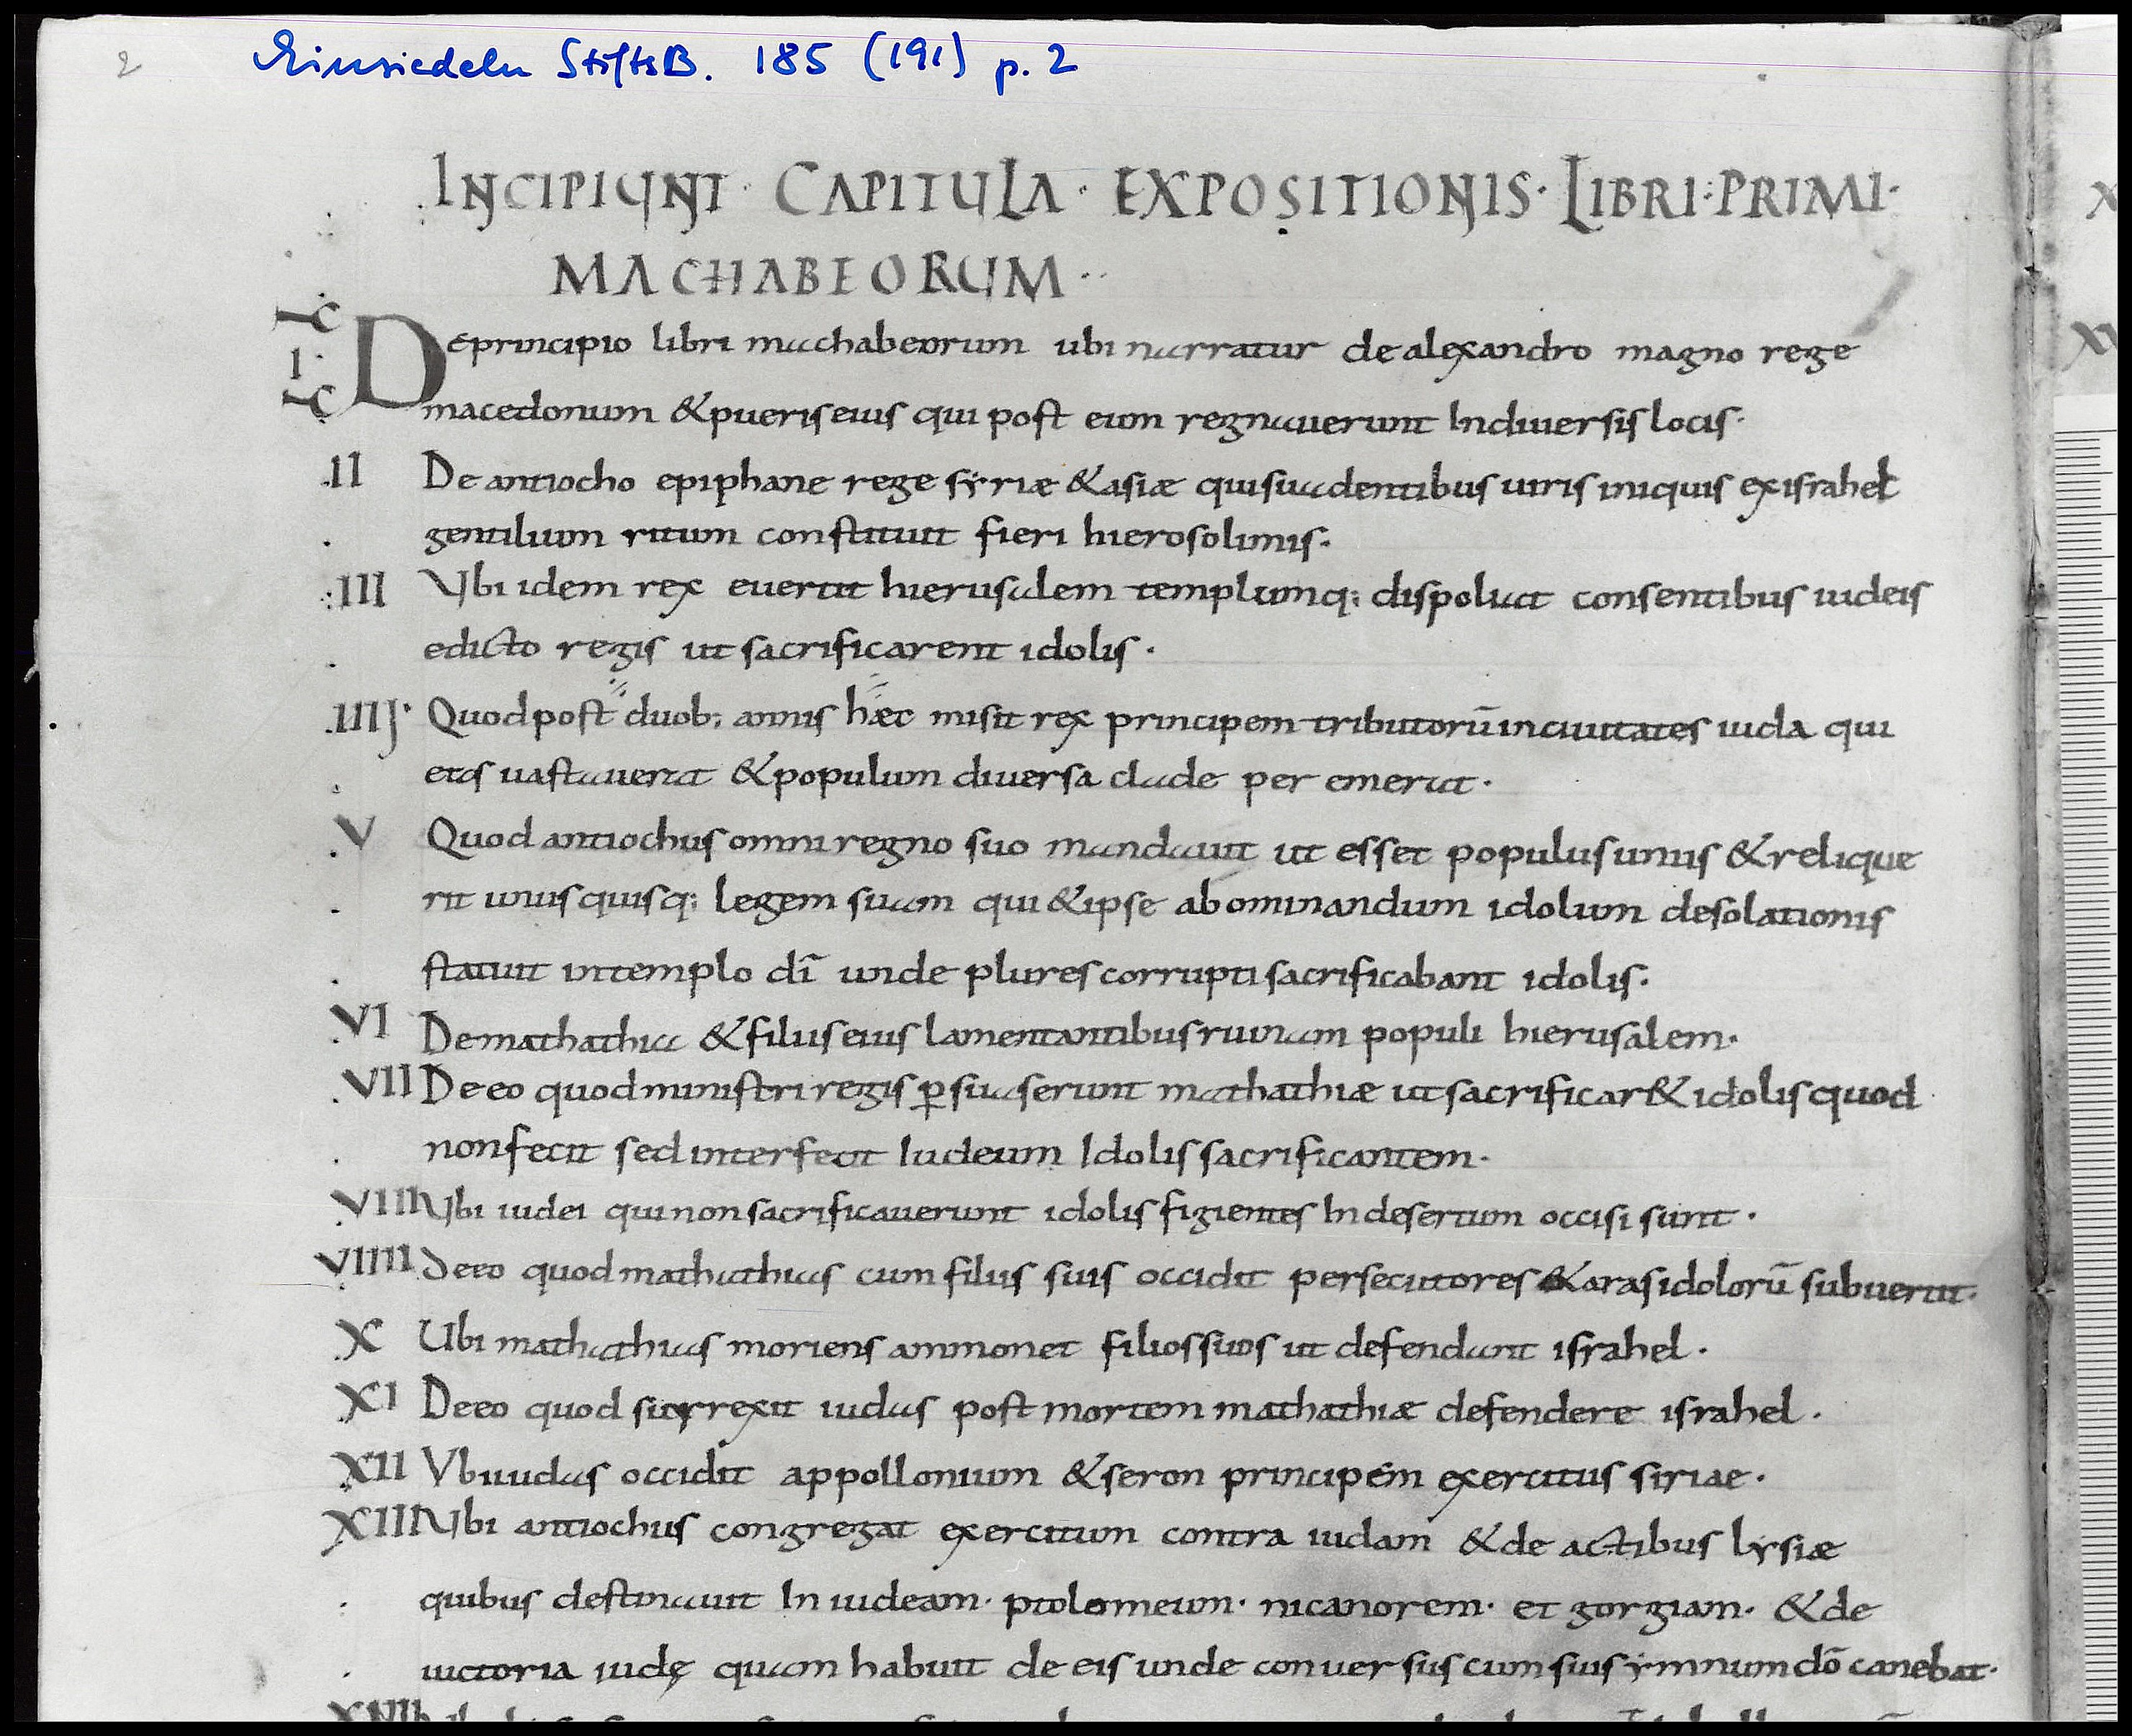 2
Einsiedeln StiftsB. 185 (191) p. 2
INCIPIUNT · CAPITULA · EXPOSITIONIS · LIBRI · PRIMI ·
MACHABEORUM ··
I Deprincipio libri machabeorum ubi narratur de alexandro magno rege
macedonum &pueriseius qui post eum regnauerunt Indiuersis locis·
II De antiocho epiphane rege syriæ &asiæ quisuadentibus uiris iniquis exisrahel
gentilium ritum constituit fieri hierosolimis·
III Ubi idem rex euertit hierusalem templumq; dispoliat consentibus iudeis
edicto regis ut sacrificarent idolis·
IIIJ· Quodpost duob; annis hæc misit rex principem tributorū inciuitates iuda qui
eas uastauerat &populum diuersa clade per emerat·
V Quod antiochus omni regno suo mandauit ut esset populus unus &relique
rit unus quisq; legem suam qui &ipse abominandum idolum desolationis
statuit intemplo dī unde plures corrupti sacrificabant idolis·
VI Demathathia &filiiseius lamentantibus ruinam populi hierusalem·
VII Deeo quodministri regis p̱suaserunt mathathiæ utsacrificar& idolisquod
nonfecit sed interfecit Iudeum Idolis sacrificantem·
VIII Ubi iudei quinon sacrificauerunt idolis figientes Indesertum occisi sunt·
VIIII Deeo quodmathathias cum filiis suis occidit persecutores &aras idolorū subuertit·
X Ubi mathathias moriens ammonet filiossuos ut defendant israhel·
XI Deeo quod surrexit iudas post mortem mathathiæ defendere israhel·
XII Ubiiudas occidit appollonium &seron principem exercitus siriae·
XIII Ubi antiochus congregat exercitum contra iudam &de actibus lysiæ
quibus destinauit In iudeam· ptolomeum· nicanorem· et gorgiam· &de
uictoria iudę quam habuit de eis unde conuersus cum suis ymnum dō canebat·